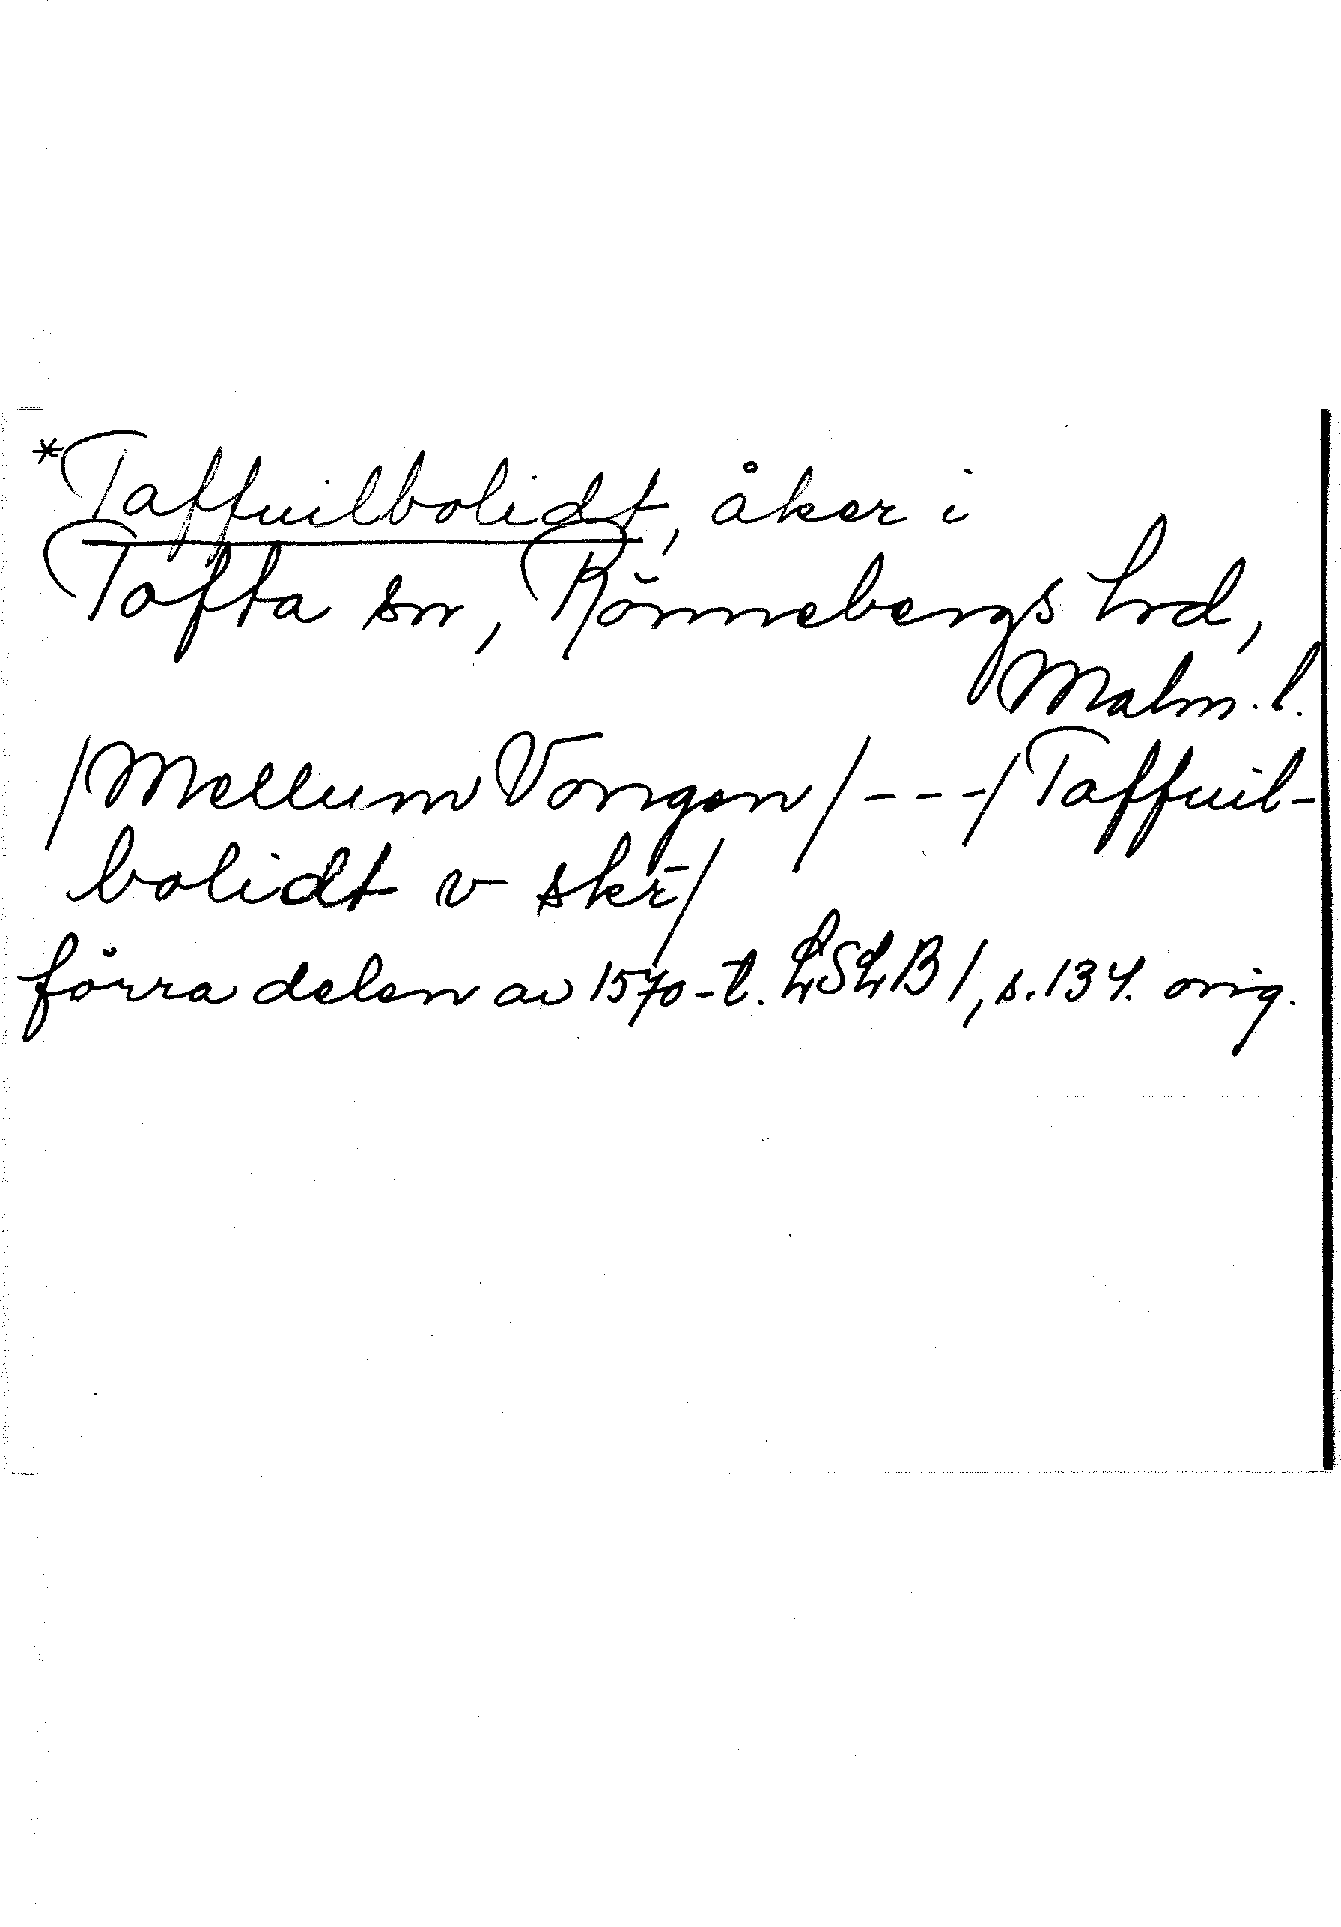 *Taffuilbolidt, åker i
Tofta sn, Rönnebergs hrd,
Malm. l.
/Mellum Vongen/---/Taffuil-
bolidt v skr/
förra delen av 1570-t. LSLB 1, s. 134. orig.